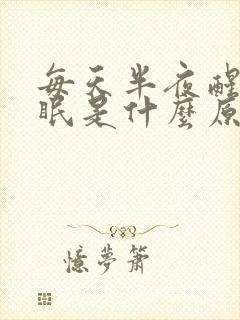 每天半夜醒
眠是什麼原
憶夢簫